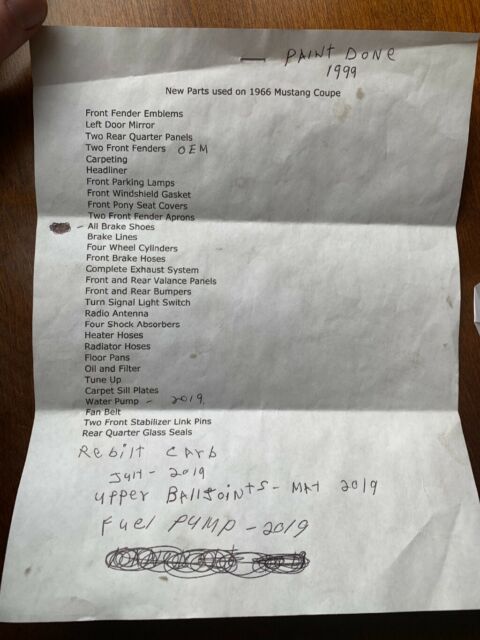 PAINT DONE
1999
New Parts used on 1966 Mustang Coupe
Front Fender Emblems
Left Door Mirror
Two Rear Quarter Panels
Two Front Fenders OEM
Carpeting
Headliner
Front Parking Lamps
Front Windshield Gasket
Front Pony Seat Covers
Two Front Fender Aprons
- All Brake Shoes
Brake Lines
Four Wheel Cylinders
Front Brake Hoses
Complete Exhaust System
Front and Rear Valance Panels
Front and Rear Bumpers
Turn Signal Light Switch
Radio Antenna
Four Shock Absorbers
Heater Hoses
Radiator Hoses
Floor Pans
Oil and Filter
Tune Up
Carpet Sill Plates
Water Pump - 2019
Fan Belt
Two Front Stabilizer Link Pins
Rear Quarter Glass Seals
Rebilt Carb
- 2019
upper Balljoints - MAY 2019
Fuel PUMP - 2019